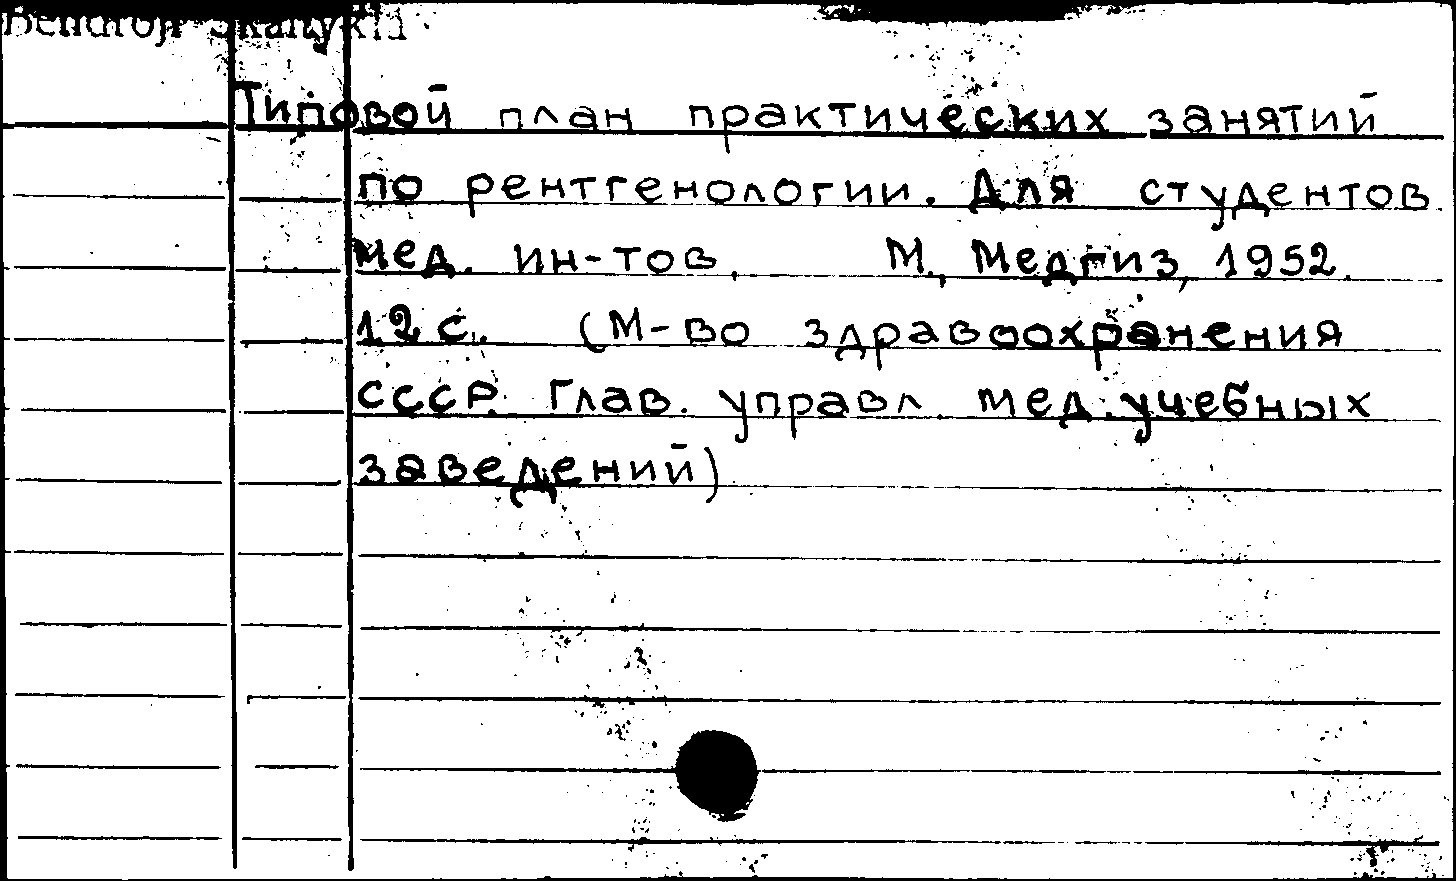 Bendroji skaitykla
Типовой план практических занятий
по рентгенологии. Для студентов
мед. ин-тов. М., Медгиз, 1952.
12 с. (М-во здравоохранения
СССР. Глав. управл. мед. учебных
заведений)